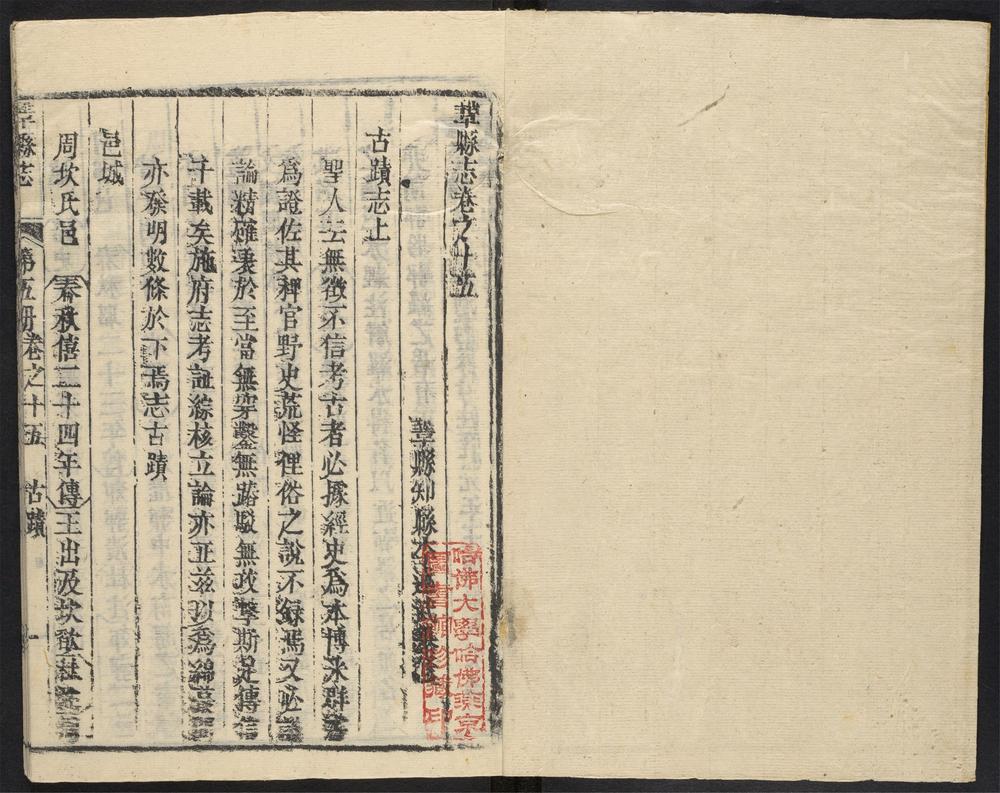 鞏縣志卷之十五
鞏縣知縣李述武
古蹟志上
聖人云無徵不信考古者必據經史為本博采群書
為證佐其稗官野史荒怪俚俗之說不錄焉又必議
論精確衷於至當無穿鑿無踳駁無攻擊斯足傳信
千載矣施府志考証綜核立論亦正茲以為綿蕞
亦發明數條於下焉志古蹟
邑城
周坎氏邑 春秋僖二十四年傳王出及坎欿杜
鞏縣志 第五冊 卷之十五 古蹟 一
哈佛大學哈佛燕京
圖書館珍藏印